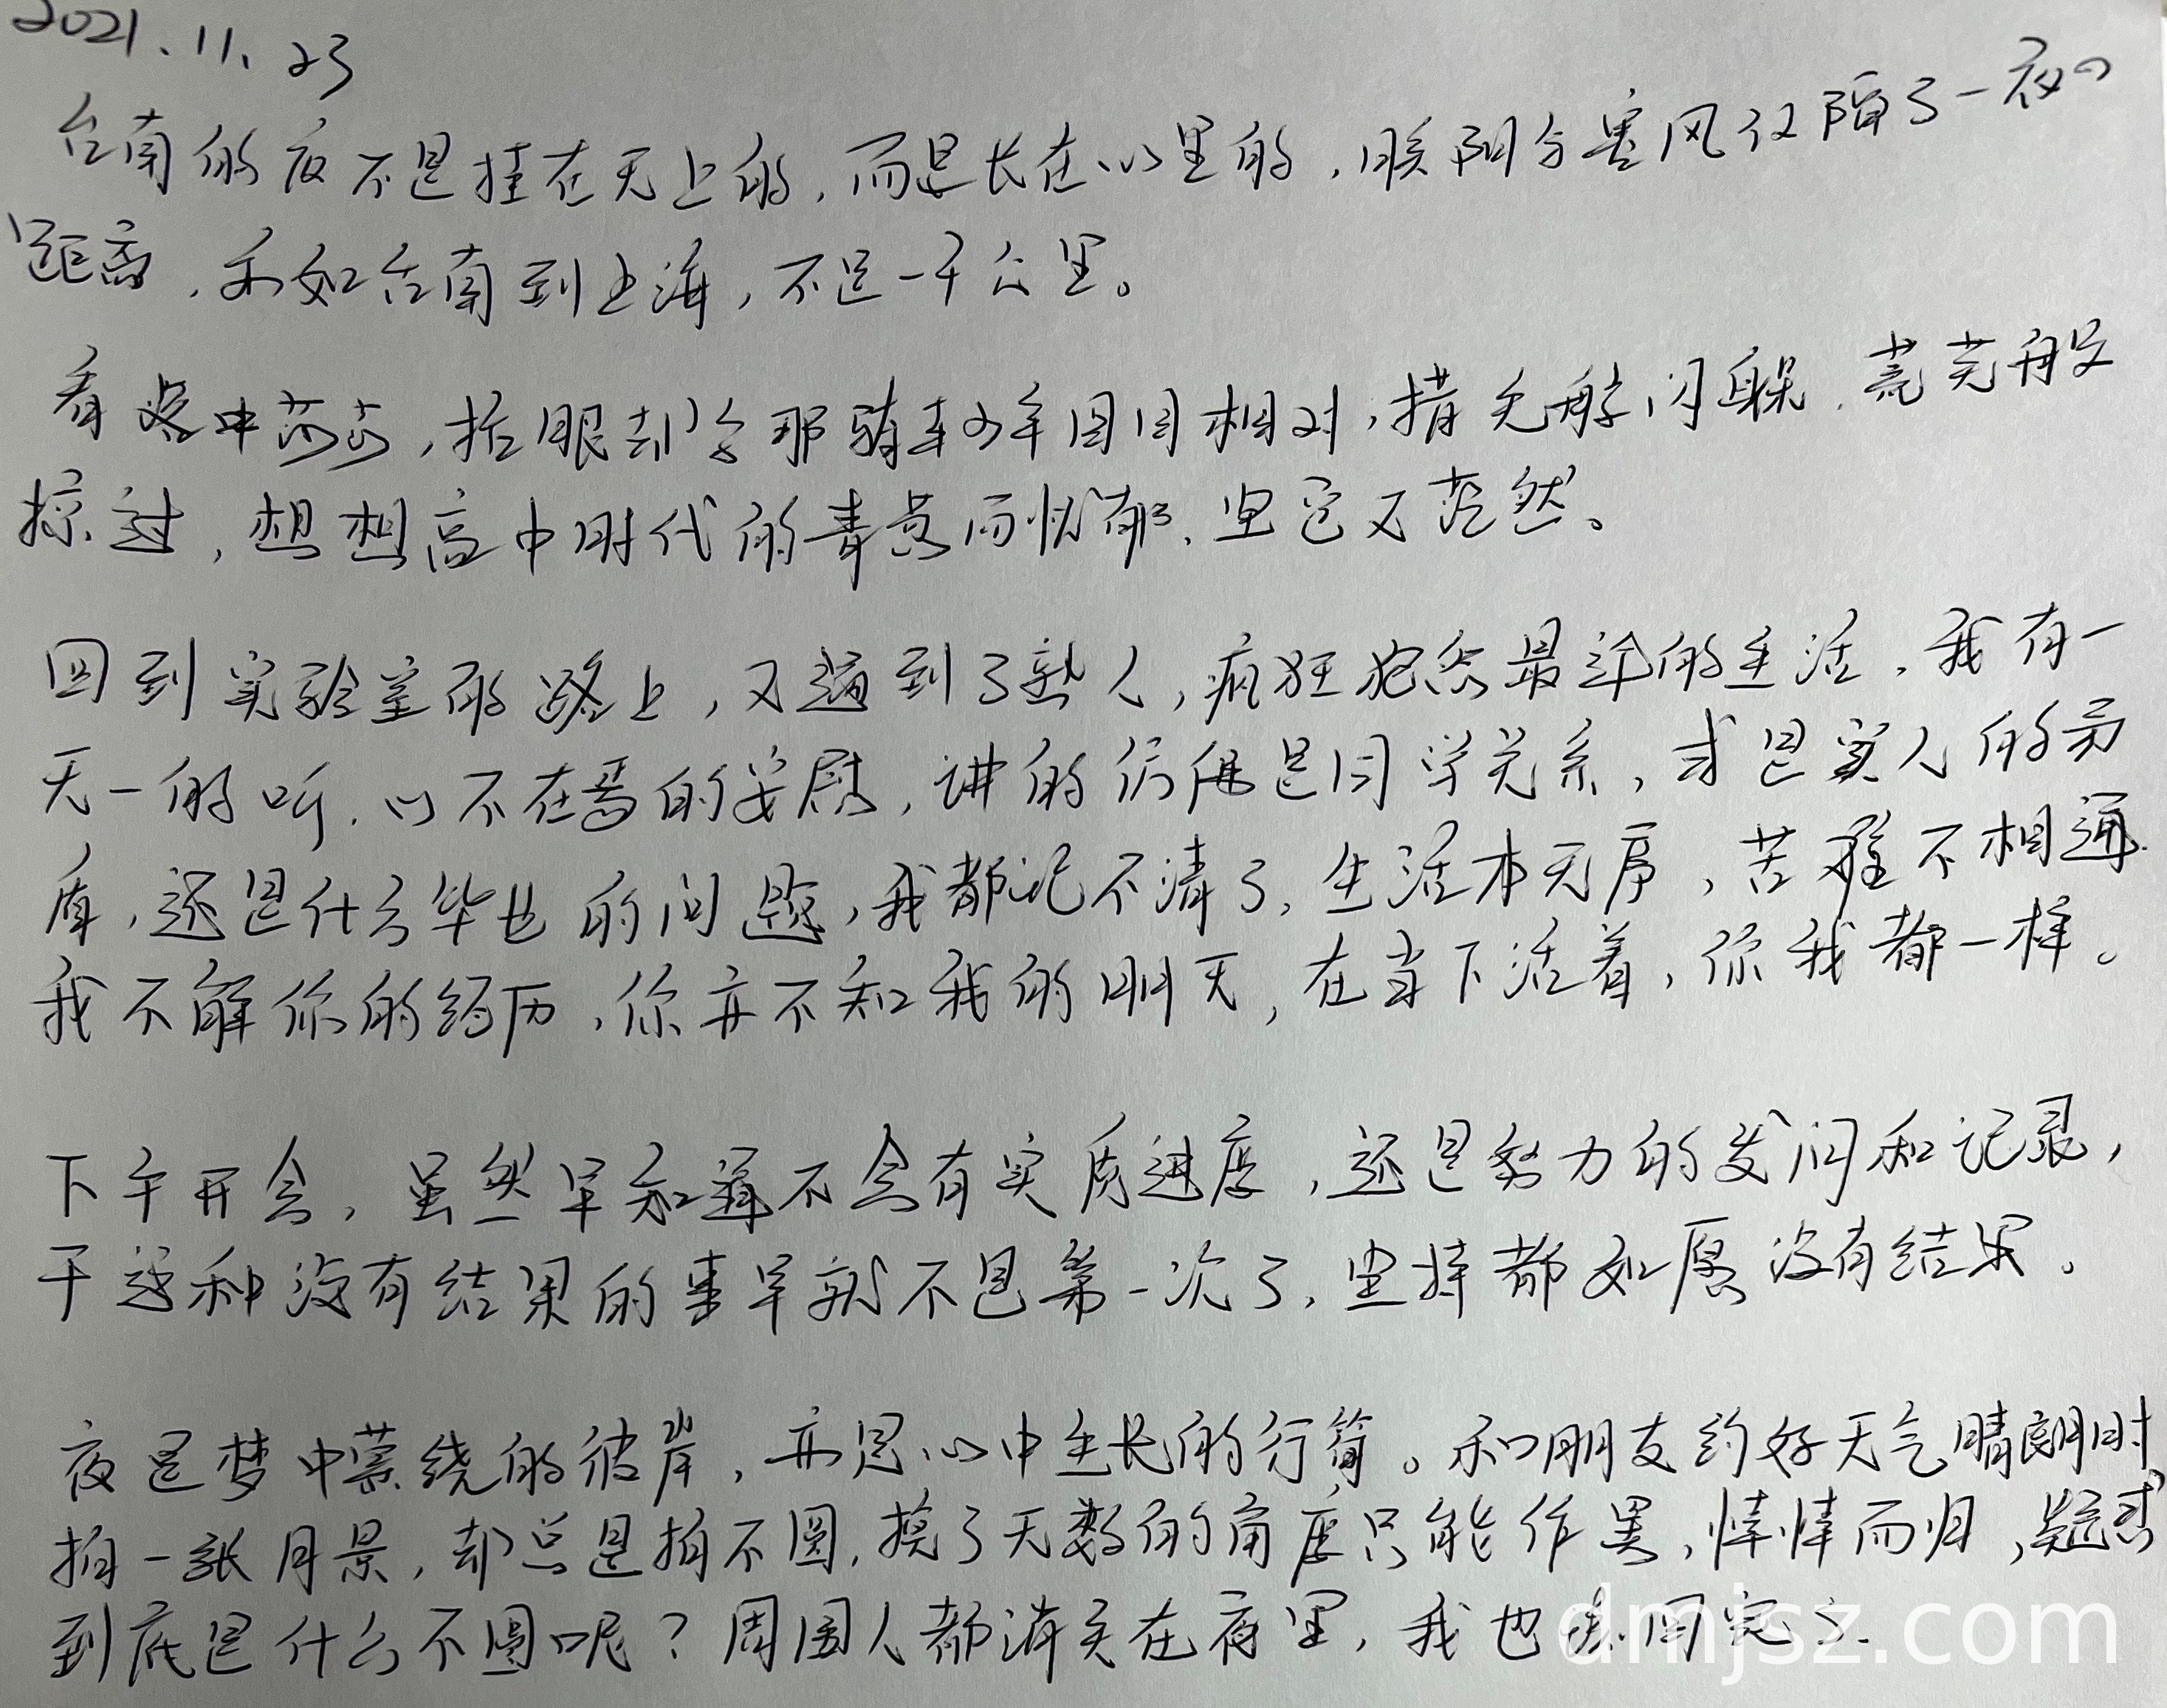 2021.11.23
台南的夜不是挂在天上的,而是长在心里的,艳阳与寒风仅隔了一夜の
距离,永如台南到上海,不足一千公里。
看路中莎莎,抬眼却与那骑车少年目目相对,措无般闪躲,荒芜般
掠过,想想高中时代的青葱而忧郁,坚定又茫然。
回到实验室的路上,又遇到了熟人,疯狂抱怨最近的生活,我有一
无一的听,心不在焉的安慰,讲的仿佛是同学关系,或是家人的矛
盾,还是什么毕业的问题,我都记不清了,生活本无序,苦难不相通
我不解你的经历,你亦不知我的明天,在当下活着,你我都一样。
下午开会,虽然早知道不会有实质进度,还是努力的发问和记录,
干这种没有结果的事早就不是第一次了,坚持都如愿没有结果。
夜是梦中萦绕的彼岸,亦是心中生长的行箭。和朋友约好天气晴朗时
拍一张月景,却总是拍不圆,换了无数的角度只能作罢,悻悻而归,疑惑
到底是什么不圆呢?周围人都消失在夜里,我也该回家了.
dmjsz.com